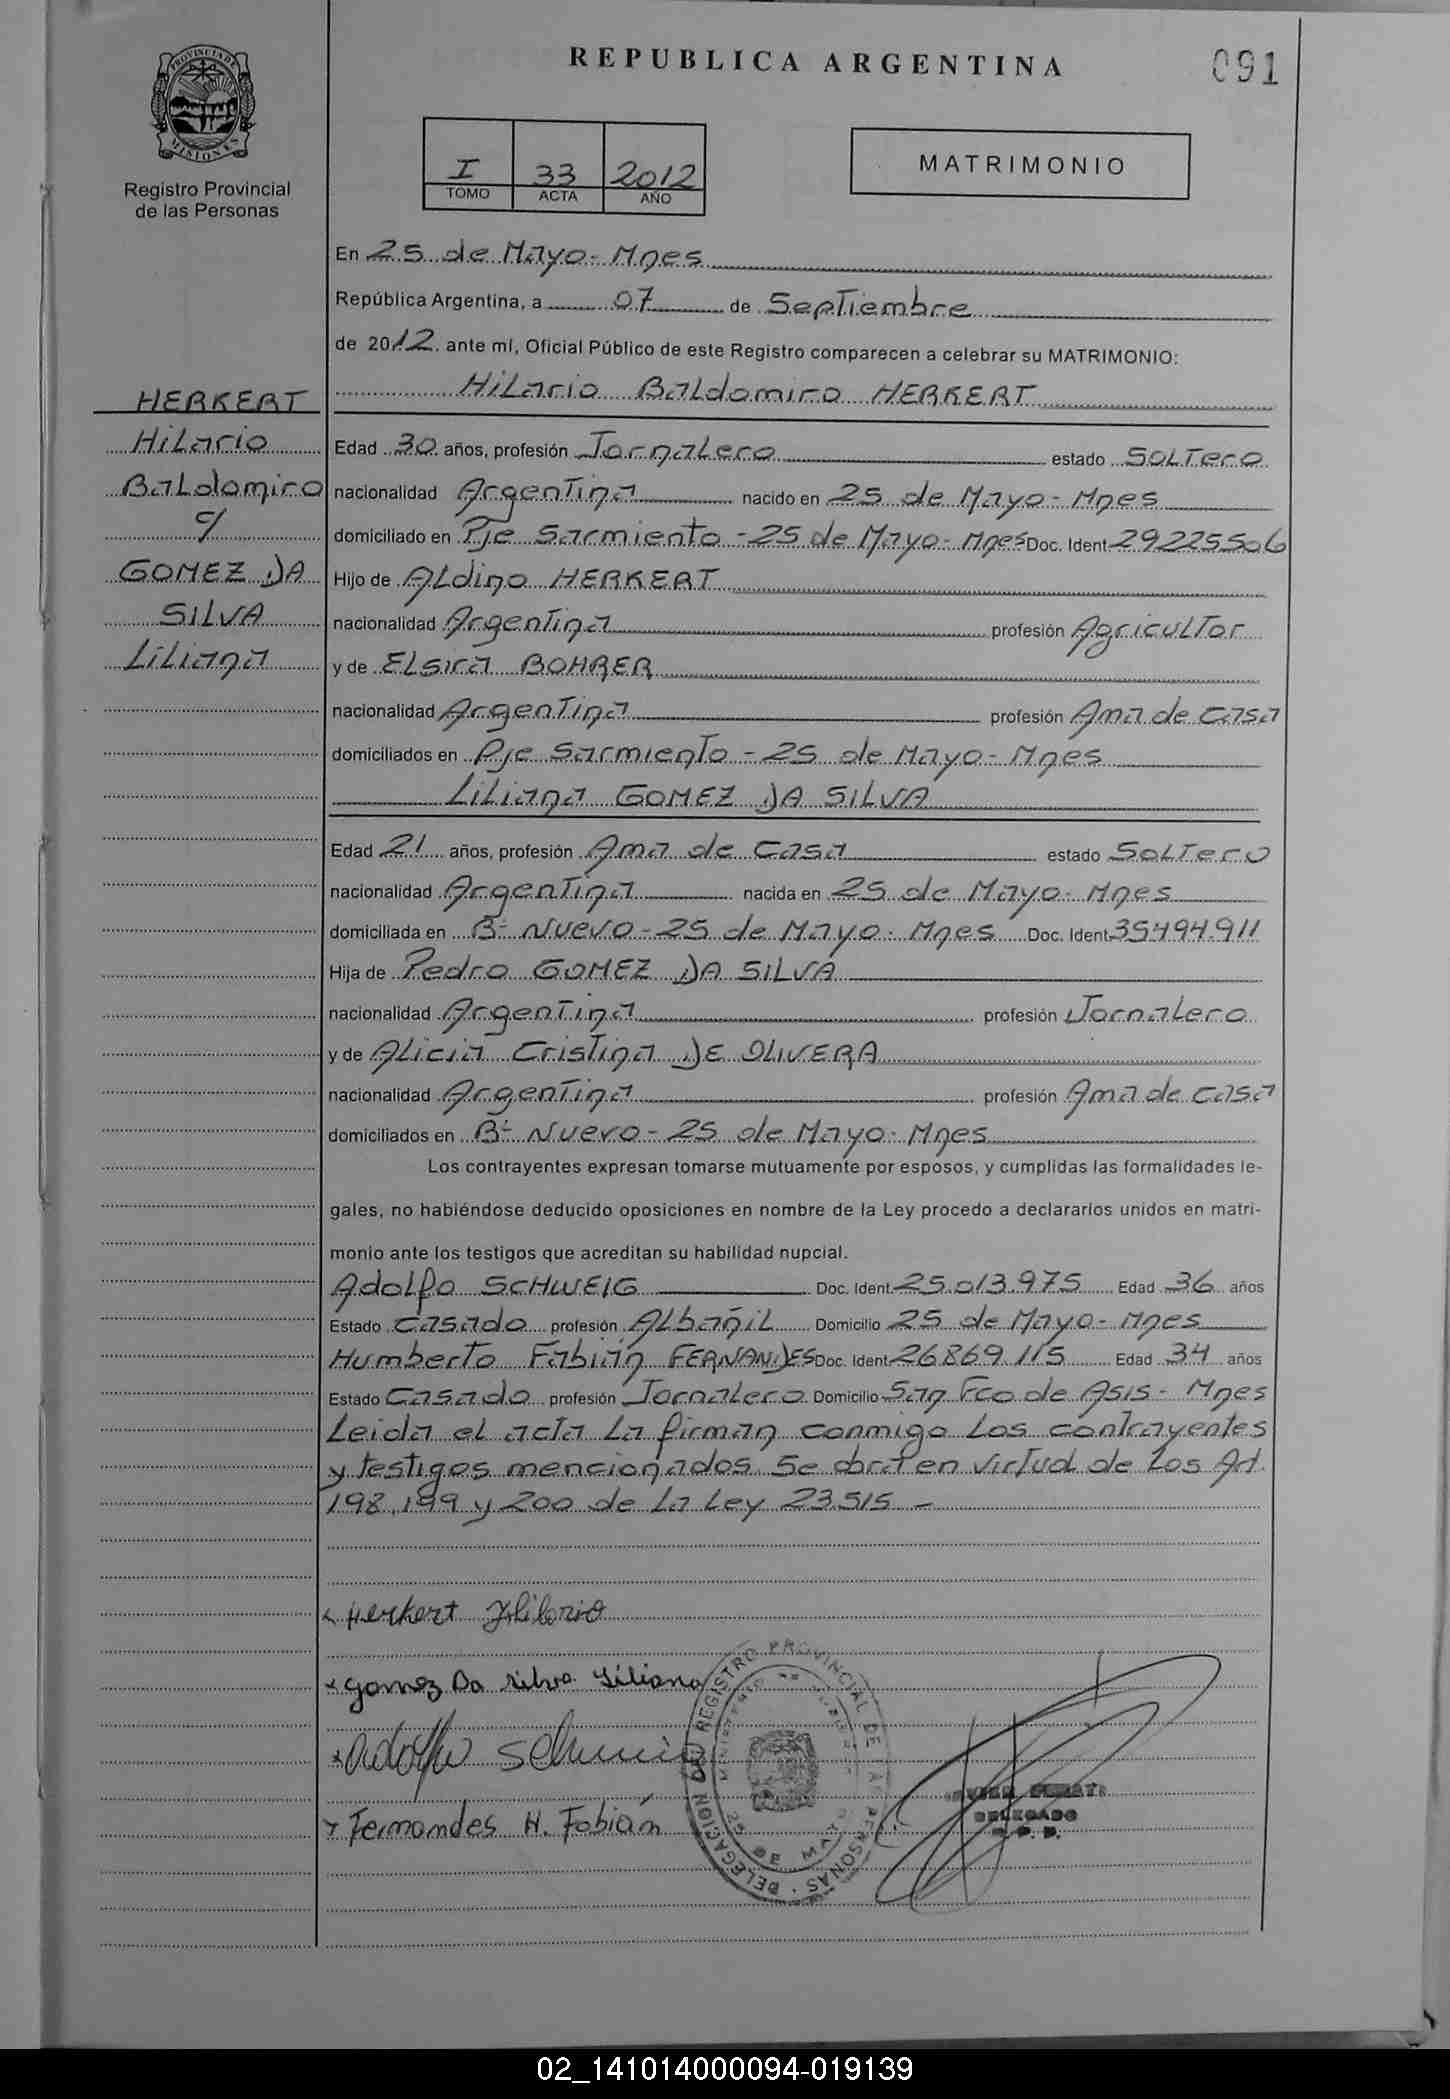 REPUBLICA ARGENTINA
091
PROVINCIA DE
MISIONES
Registro Provincial
de las Personas
I 33 2012
TOMO ACTA AÑO
MATRIMONIO
En 25 de Mayo- Mnes
República Argentina, a 07 de Septiembre
de 2012 ante mí, Oficial Público de este Registro comparecen a celebrar su MATRIMONIO:
Hilario Baldomiro HERKERT
HERKERT
Hilario
Baldomiro
c/
GOMEZ DA
SILVA
Liliana
Edad 30 años, profesión Jornalero estado Soltero
nacionalidad Argentina nacido en 25 de Mayo- Mnes
domiciliado en Pje Sarmiento - 25 de Mayo- Mnes Doc. Ident 29225506
Hijo de Aldino HERKERT
nacionalidad Argentina profesión Agricultor
y de Elsira BOHRER
nacionalidad Argentina profesión Ama de casa
domiciliados en Pje Sarmiento - 25 de Mayo- Mnes
Liliana GOMEZ DA SILVA
Edad 21 años, profesión Ama de Casa estado Soltero
nacionalidad Argentina nacida en 25 de Mayo- Mnes
domiciliada en B° Nuevo - 25 de Mayo- Mnes Doc. Ident 35494.911
Hija de Pedro GOMEZ DA SILVA
nacionalidad Argentina profesión Jornalero
y de Alicia Cristina DE OLIVERA
nacionalidad Argentina profesión Ama de casa
domiciliados en B° Nuevo - 25 de Mayo- Mnes
Los contrayentes expresan tomarse mutuamente por esposos, y cumplidas las formalidades le-
gales, no habiéndose deducido oposiciones en nombre de la Ley procedo a declararlos unidos en matri-
monio ante los testigos que acreditan su habilidad nupcial.
Adolfo SCHWEIG Doc. Ident 25.013.975 Edad 36 años
Estado Casado profesión Albañil Domicilio 25 de Mayo- Mnes
Humberto Fabián FERNANDES Doc. Ident 26869.115 Edad 34 años
Estado Casado profesión Jornalero Domicilio San Fco de Asis- Mnes
Leida el acta la firman conmigo los contrayentes
y testigos mencionados. Se obra en virtud de los Art.
198, 199 y 200 de la Ley 23.515 -
Herkert Hilario
Gomez Da Silva Liliana
Adolfo
Fernandes H. Fabián
DELEGACION DEL REGISTRO PROVINCIAL DE LAS PERSONAS
25 DE MAYO
DELEGADO
02_141014000094-019139